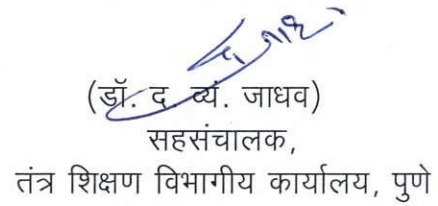 (डॉ. द. व्यं. जाधव)
सहसंचालक,
तंत्र शिक्षण विभागीय कार्यालय, पुणे